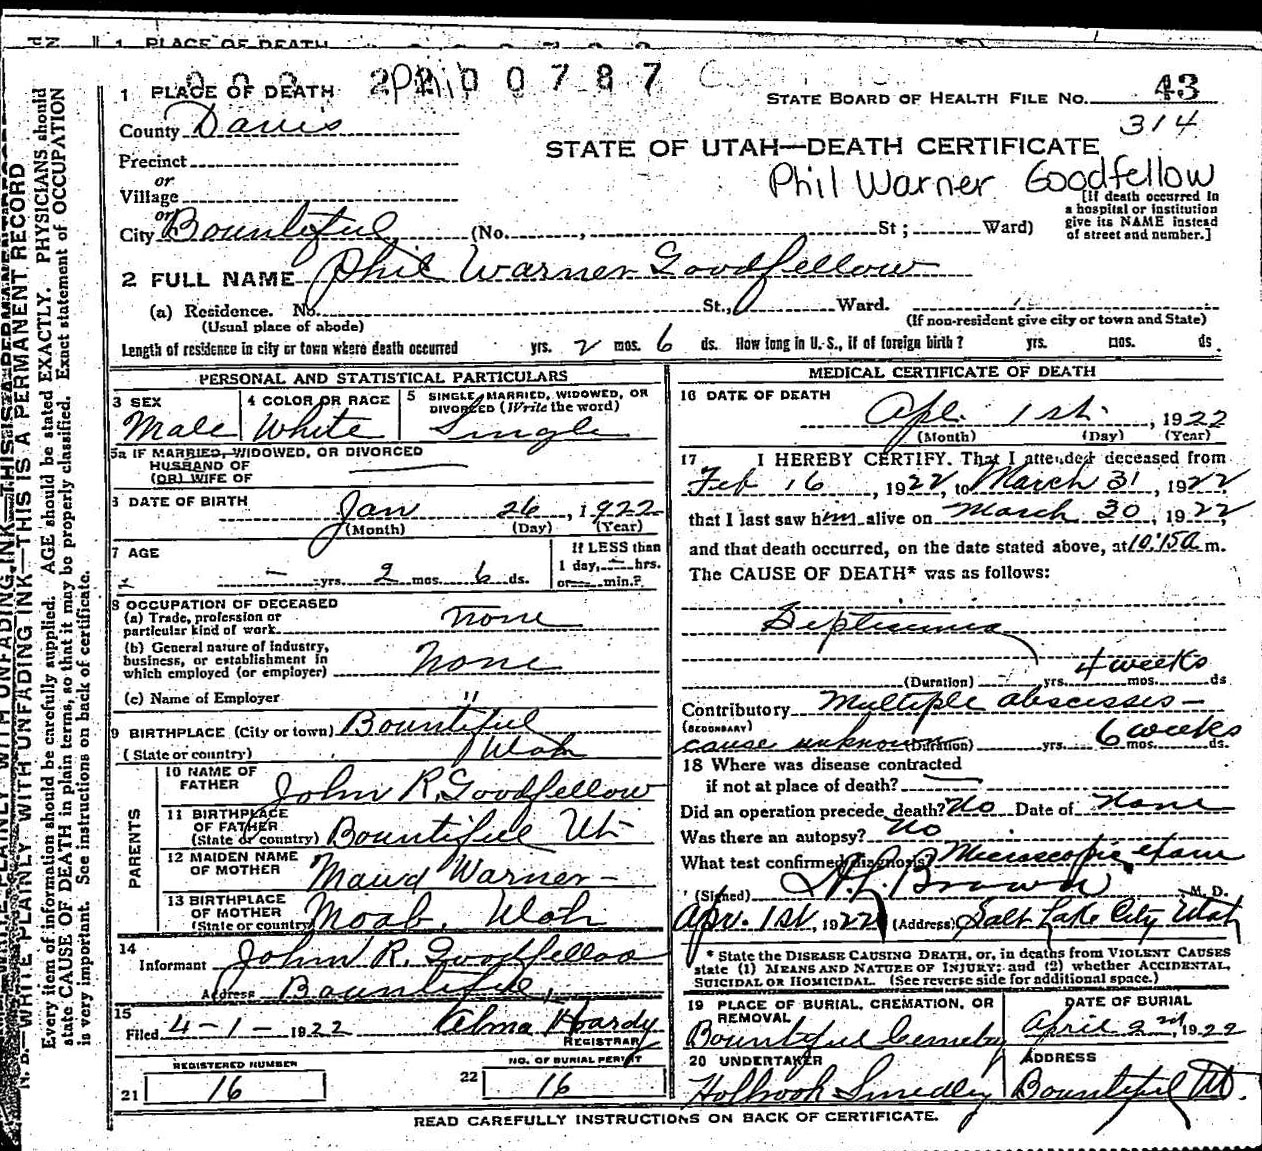 1 PLACE OF DEATH
2200787
1 PLACE OF DEATH
STATE BOARD OF HEALTH FILE NO. 43
314
County Davis
STATE OF UTAH—DEATH CERTIFICATE
Precinct
Phil Warner Goodfellow
or
Village
or
City Bountiful (No. , St ; Ward)
[If death occurred in
a hospital or institution
give its NAME instead
of street and number.]
2 FULL NAME Phil Warner Goodfellow
(a) Residence. No. St., Ward.
(Usual place of abode)
(If non-resident give city or town and State)
Length of residence in city or town where death occurred yrs. 2 mos. 6 ds. How long in U. S., if of foreign birth ? yrs. mos. ds.
PERSONAL AND STATISTICAL PARTICULARS
3 SEX
Male
4 COLOR OR RACE
White
5 SINGLE, MARRIED, WIDOWED, OR
DIVORCED (Write the word)
Single
5a IF MARRIED, WIDOWED, OR DIVORCED
HUSBAND OF
(OR) WIFE OF
6 DATE OF BIRTH
Jan 26, 1922
(Month) (Day) (Year)
7 AGE
– yrs. 2 mos. 6 ds.
If LESS than
1 day, — hrs.
or — min.?
8 OCCUPATION OF DECEASED
(a) Trade, profession or
particular kind of work none
(b) General nature of industry,
business, or establishment in
which employed (or employer) None
(c) Name of Employer "
9 BIRTHPLACE (City or town) Bountiful
(State or country) Utah
PARENTS
10 NAME OF
FATHER John R. Goodfellow
11 BIRTHPLACE
OF FATHER
(State or country) Bountiful Ut
12 MAIDEN NAME
OF MOTHER Maud Warner
13 BIRTHPLACE
OF MOTHER
(State or country) Moab, Utah
14
Informant John R. Goodfellow
Address Bountiful,
15
Filed 4-1-1922 Alma Hardy
REGISTRAR
REGISTERED NUMBER
21 16
NO. OF BURIAL PERMIT
22 16
MEDICAL CERTIFICATE OF DEATH
16 DATE OF DEATH
Apl. 1st, 1922
(Month) (Day) (Year)
17 I HEREBY CERTIFY, That I attended deceased from
Feb 16, 1922, to March 31, 1922
that I last saw him alive on March 30, 1922,
and that death occurred, on the date stated above, at 10:15 a m.
The CAUSE OF DEATH* was as follows:
Septicemia
4 weeks
(Duration) yrs. mos. ds
Contributory Multiple abscesses –
(SECONDARY)
cause unknown (Duration) yrs. 6 weeks mos. ds.
18 Where was disease contracted
if not at place of death?
Did an operation precede death? No Date of None
Was there an autopsy? No
What test confirmed diagnosis? Microscopic exam
(Signed) H. L. Brown M. D.
Apr. 1st, 1922 (Address) Salt Lake City Utah
* State the DISEASE CAUSING DEATH, or, in deaths from VIOLENT CAUSES
state (1) MEANS AND NATURE OF INJURY; and (2) whether ACCIDENTAL,
SUICIDAL OR HOMICIDAL. (See reverse side for additional space.)
19 PLACE OF BURIAL, CREMATION, OR
REMOVAL
Bountiful Cemetery
DATE OF BURIAL
April 2nd, 1922
20 UNDERTAKER
Holbrook Smedley
ADDRESS
Bountiful Ut.
READ CAREFULLY INSTRUCTIONS ON BACK OF CERTIFICATE.
N. B.—WRITE PLAINLY WITH UNFADING INK—THIS IS A PERMANENT RECORD
Every item of information should be carefully supplied. AGE should be stated EXACTLY. PHYSICIANS should
state CAUSE OF DEATH in plain terms, so that it may be properly classified. Exact statement of OCCUPATION
is very important. See instructions on back of certificate.